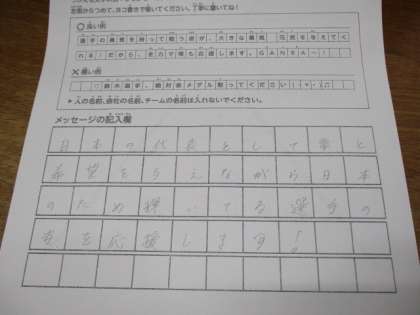 左側からつめて、ヨコ書きで書いてください。丁寧に書いてね!
良い例
選手の勇気を持って戦う姿が、大きな勇気、元気を与えてく
れる!だから、全力で僕も応援します。GANBA~!
悪い例
選手、絶対金メダル取ってください!
* 人の名前、会社の名前、チームの名前は入れないでください。
メッセージの記入欄
日本の代表として夢と
希望を与えながら日本
のため輝いてる選手の
を応援します!